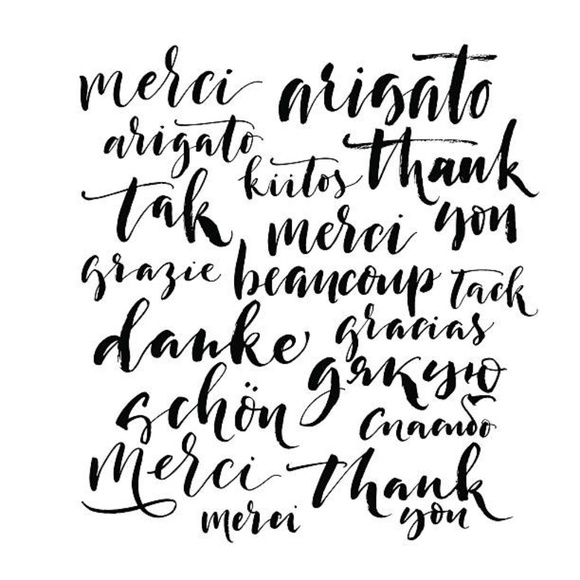 merci arigato
arigato
kiitos thank you
tak
merci beaucoup
grazie
tack
danke schön
gracias
дякую
спасибо
Merci
thank you
merci